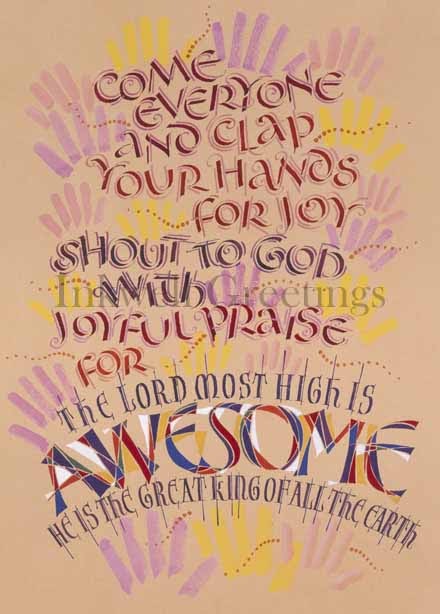 COME
EVERYONE
AND CLAP
YOUR HANDS
FOR JOY
SHOUT TO GOD
WITH
InkWebGreetings
JOYFUL PRAISE
FOR
THE LORD MOST HIGH IS
AWESOME
HE IS THE GREAT KING OF ALL THE EARTH